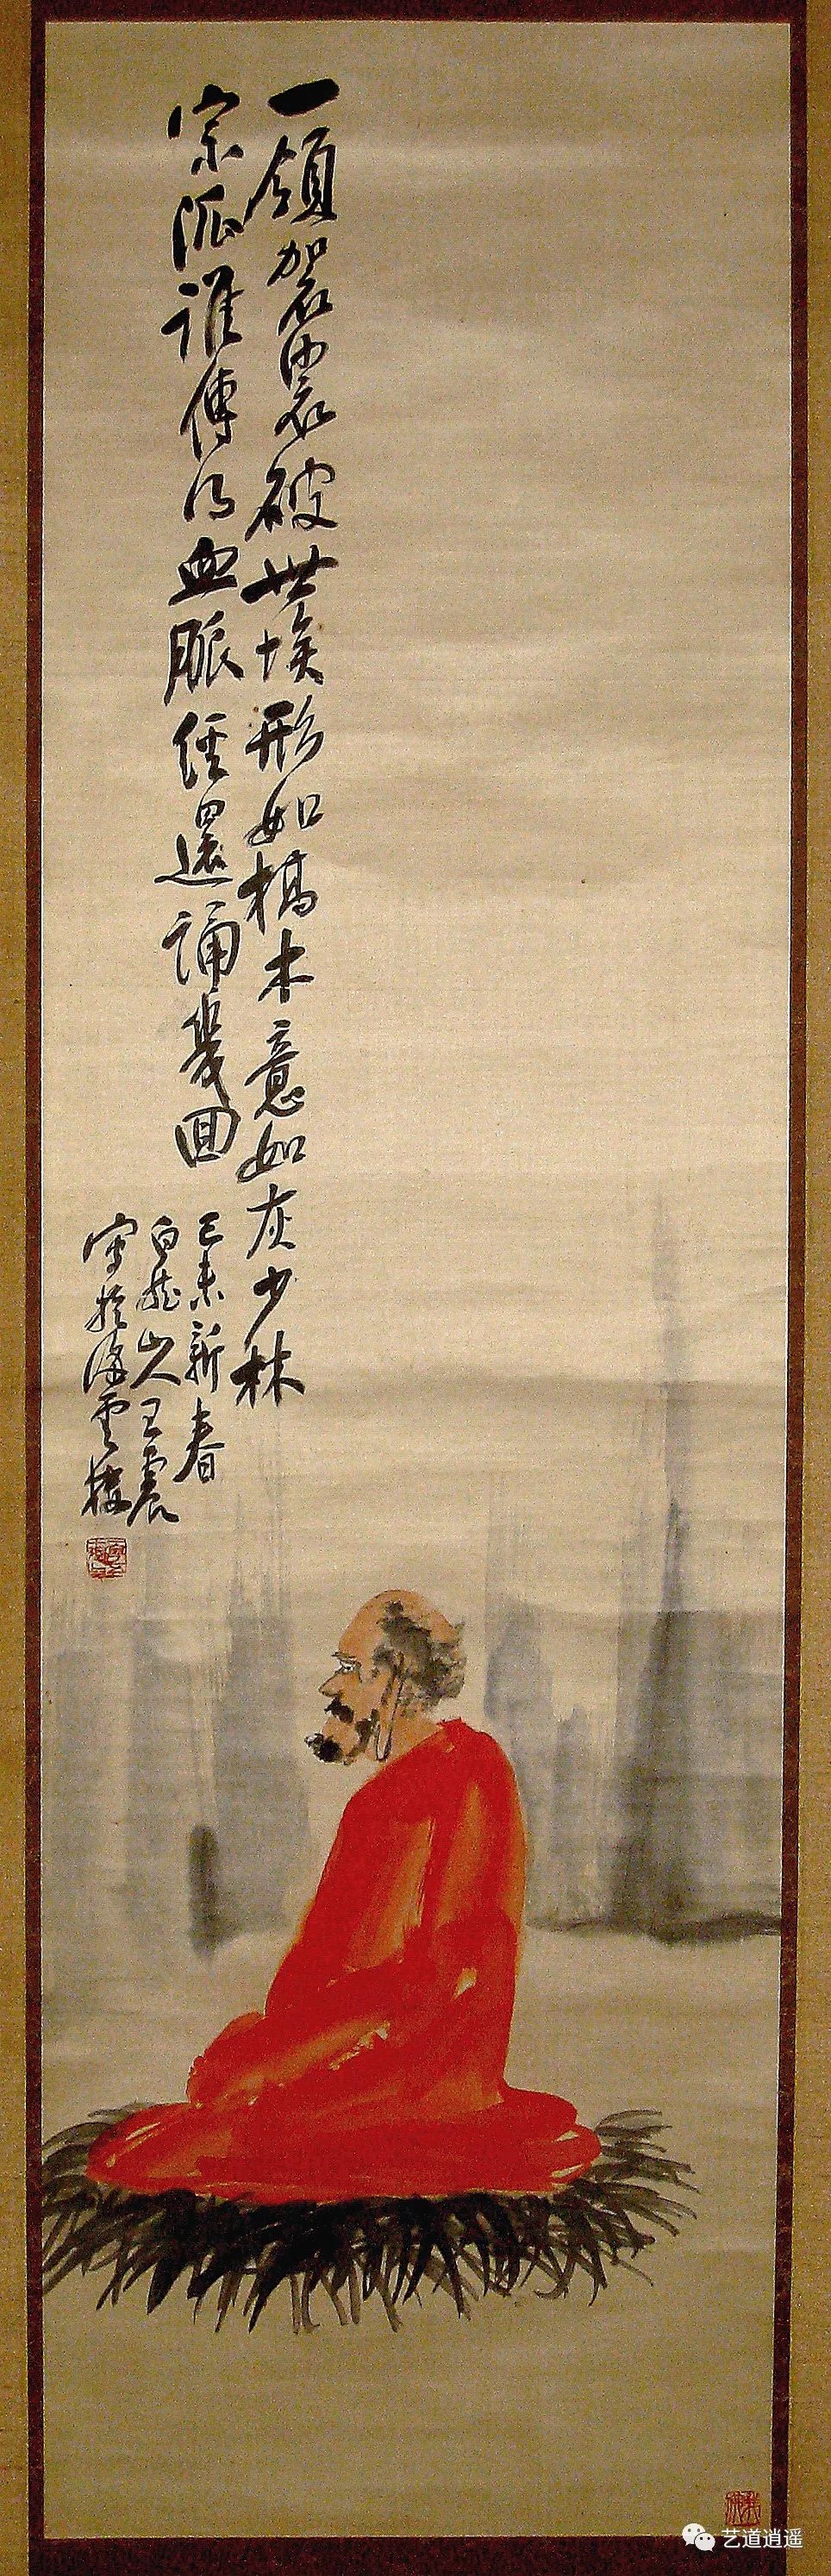 一領袈裟破世埃形如槁木意如灰少林
宗派誰傳得血脈經還誦幾回
己未新春
白龍山人王震
寫於海雲樓
艺道逍遥